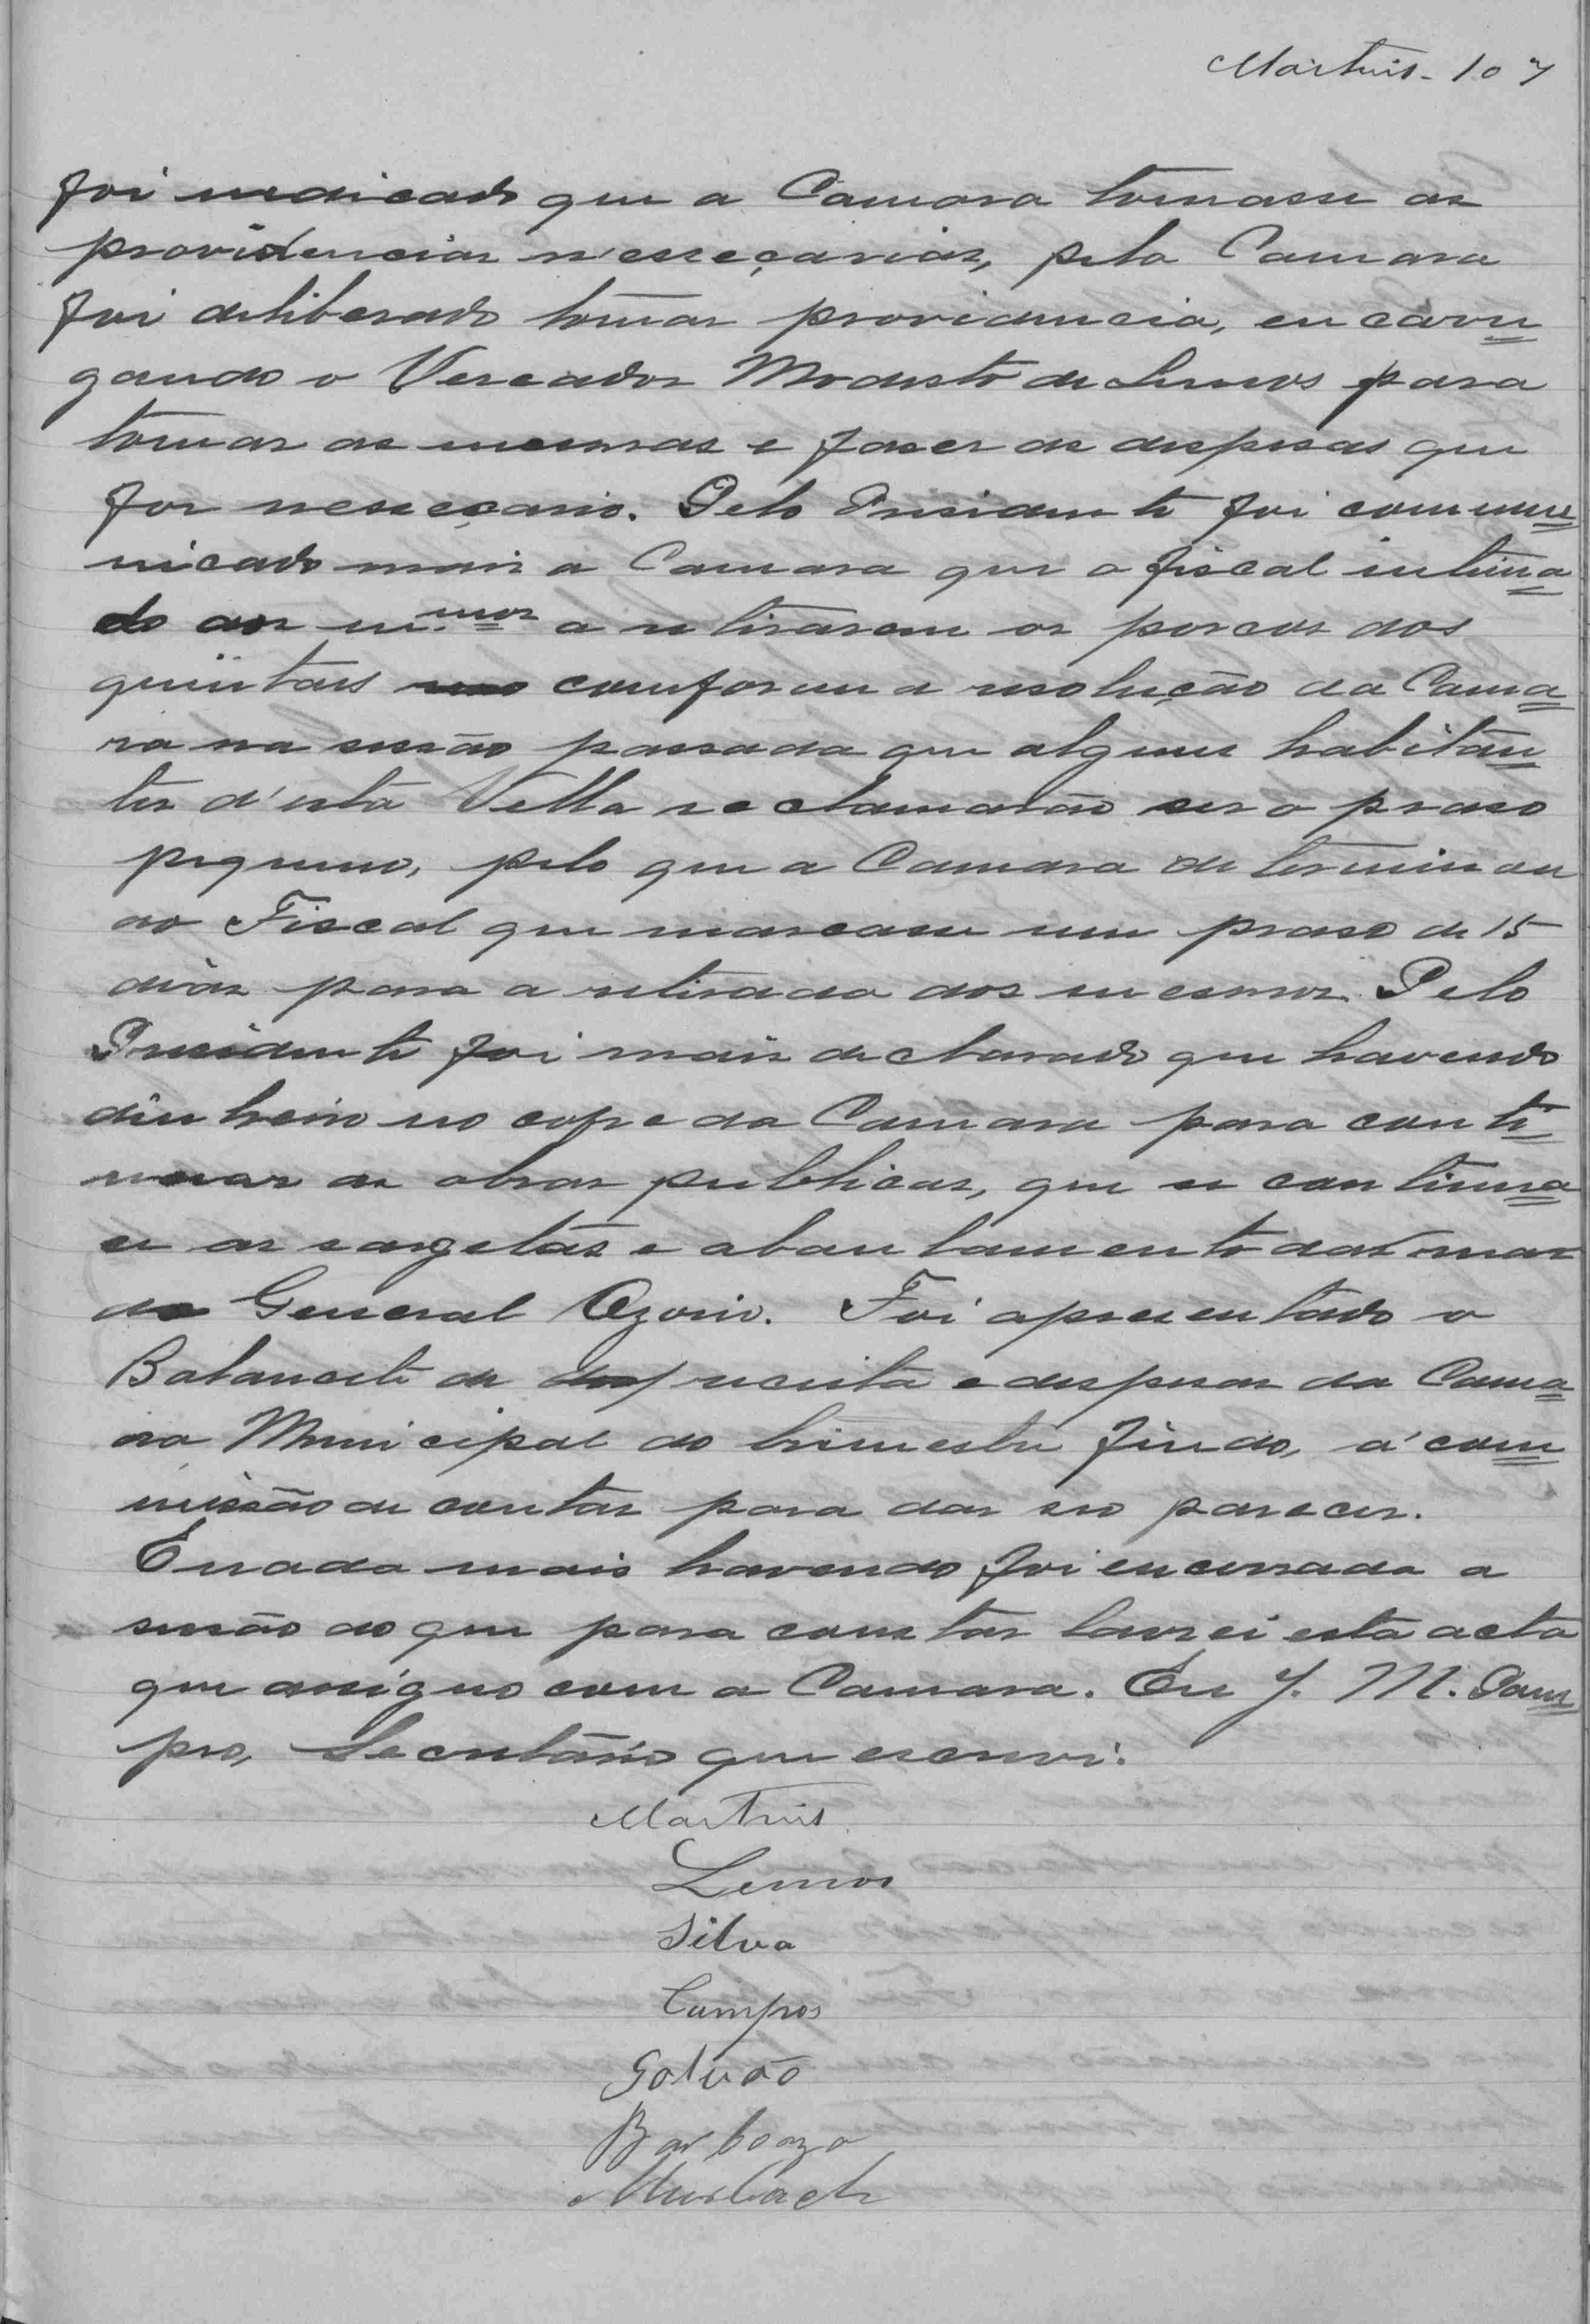 Martins - 107
foi indicado que a Camara tomasse as
providencias n'esseçarias, pela Camara
foi deliberado tomar providencia, encarre
gando o Vereador Modesto de Lemos para
tomar as mesmas e faser as despesas que
for nesseçario. Pelo Presidente foi commu
nicado mais a Camara que o fiscal intima
do aos m.mos a retirarem os porcos dos
quintaes comforme a resolução da Cama
ra na sessão passada que alguns habitan
tes d'esta Villa reclamarão ser o praso
pequeno, pelo que a Camara determinou
ao Fiscal que marcasse um praso de 15
dias para a retirada dos mesmos. Pelo
Presidente foi mais declarado que havendo
dinheiro no cofre da Camara para conti
nuar as obras publicas, que se continua
se as sargetas e abaulamento das ruas
de General Ozorio. Foi apresentado o
Balancete de receita e despesas da Cama
ra Municipal do trimestre findo, á com
missão de contas para dar seo parecer.
E nada mais havendo foi encerrada a
sessão do que para constar lavrei esta acta
que assigno com a Camara. Eu J. M. Sam
pro, Secretário que escrevi.
Martins
Lemos
Silva
Campos
Galvão
Barboza
Murbach